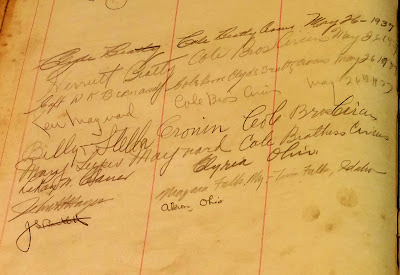 Clyde Beatty Cole Beatty Circus May 26-1937
Harriett Beatty - Cole Bros Circus May 26 1937
Capt. Cole Bros Clyde Beatty Circus May 26 1937
Ken Maynard Cole Bros Circus May 26 1937
Billy & Stella Cronin Cole Bros Circus
Mary Maynard Cole Brothers Circus
Elyria Ohio.
Niagara Falls, N.Y. - Twin Falls, Idaho
John H Hayes Akron, Ohio